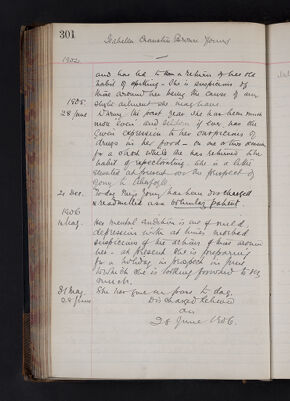 301
Isabella Young
1902.
and has led to a return of her old
habit of spitting. She is suspicious of
those around her being the cause of any
slight ailment she may have.
1905.
28 June During the past year she has been much
more and seldom if ever has she
given expression to her suspicions of
drugs in her food - on one or two occasions
for a short while she has returned to the
habit of expectorating. She is a little
at present on the prospect of
going to
21 Dec. To-day Miss Young has been discharged
& readmitted as a voluntary patient.
1906
Her mental condition is one of mild
depression with at times morbid
suspicions of the actions of those around
her - at present she is preparing
for a holiday in in June
to which she is looking forward to very
much.
31 May She has gone on pass to day.
28 June Discharged Relieved
on
28 June 1906.